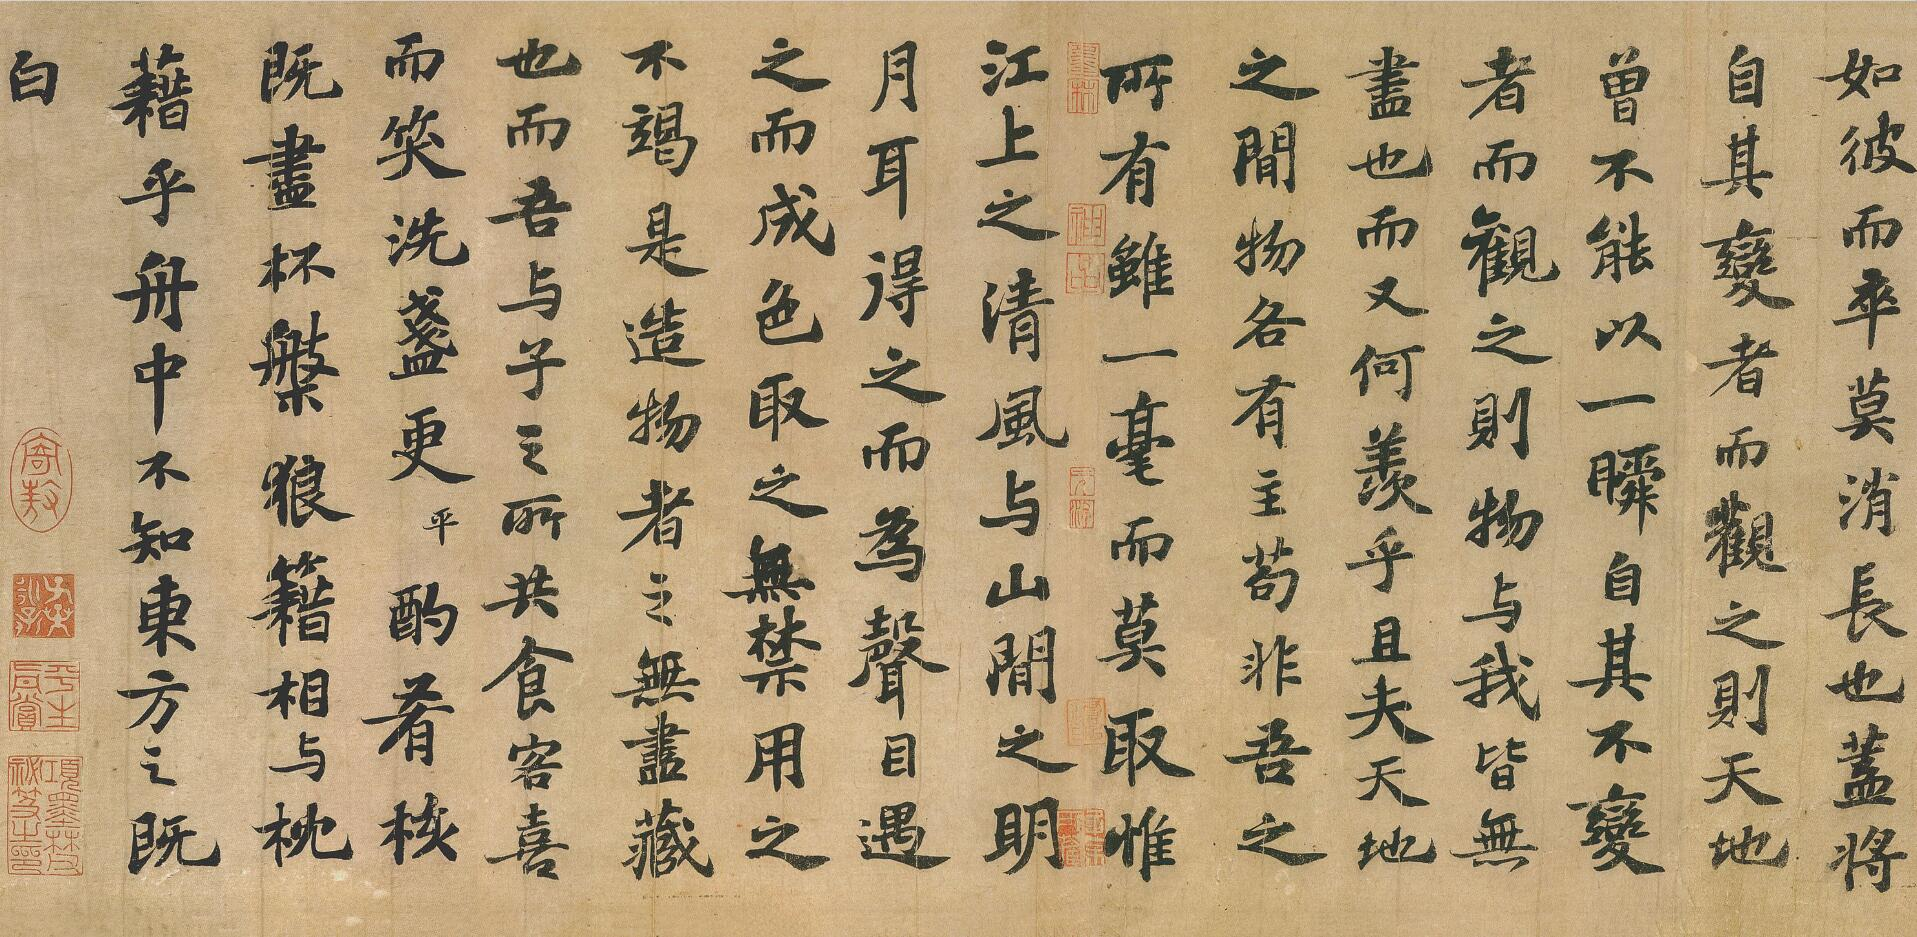 如彼而卒莫消長也蓋將
自其變者而觀之則天地
曾不能以一瞬自其不變
者而觀之則物与我皆無
盡也而又何羨乎且夫天地
之間物各有主苟非吾之
所有雖一毫而莫取惟
江上之清風与山間之明
月耳得之而為聲目遇
之而成色取之無禁用之
不竭是造物者之無盡藏
也而吾与子之所共食客喜
而笑洗盞更平酌肴核
既盡杯槃狼籍相与枕
藉乎舟中不知東方之既
白
寄敖
平生真賞
項墨林父秘笈之印